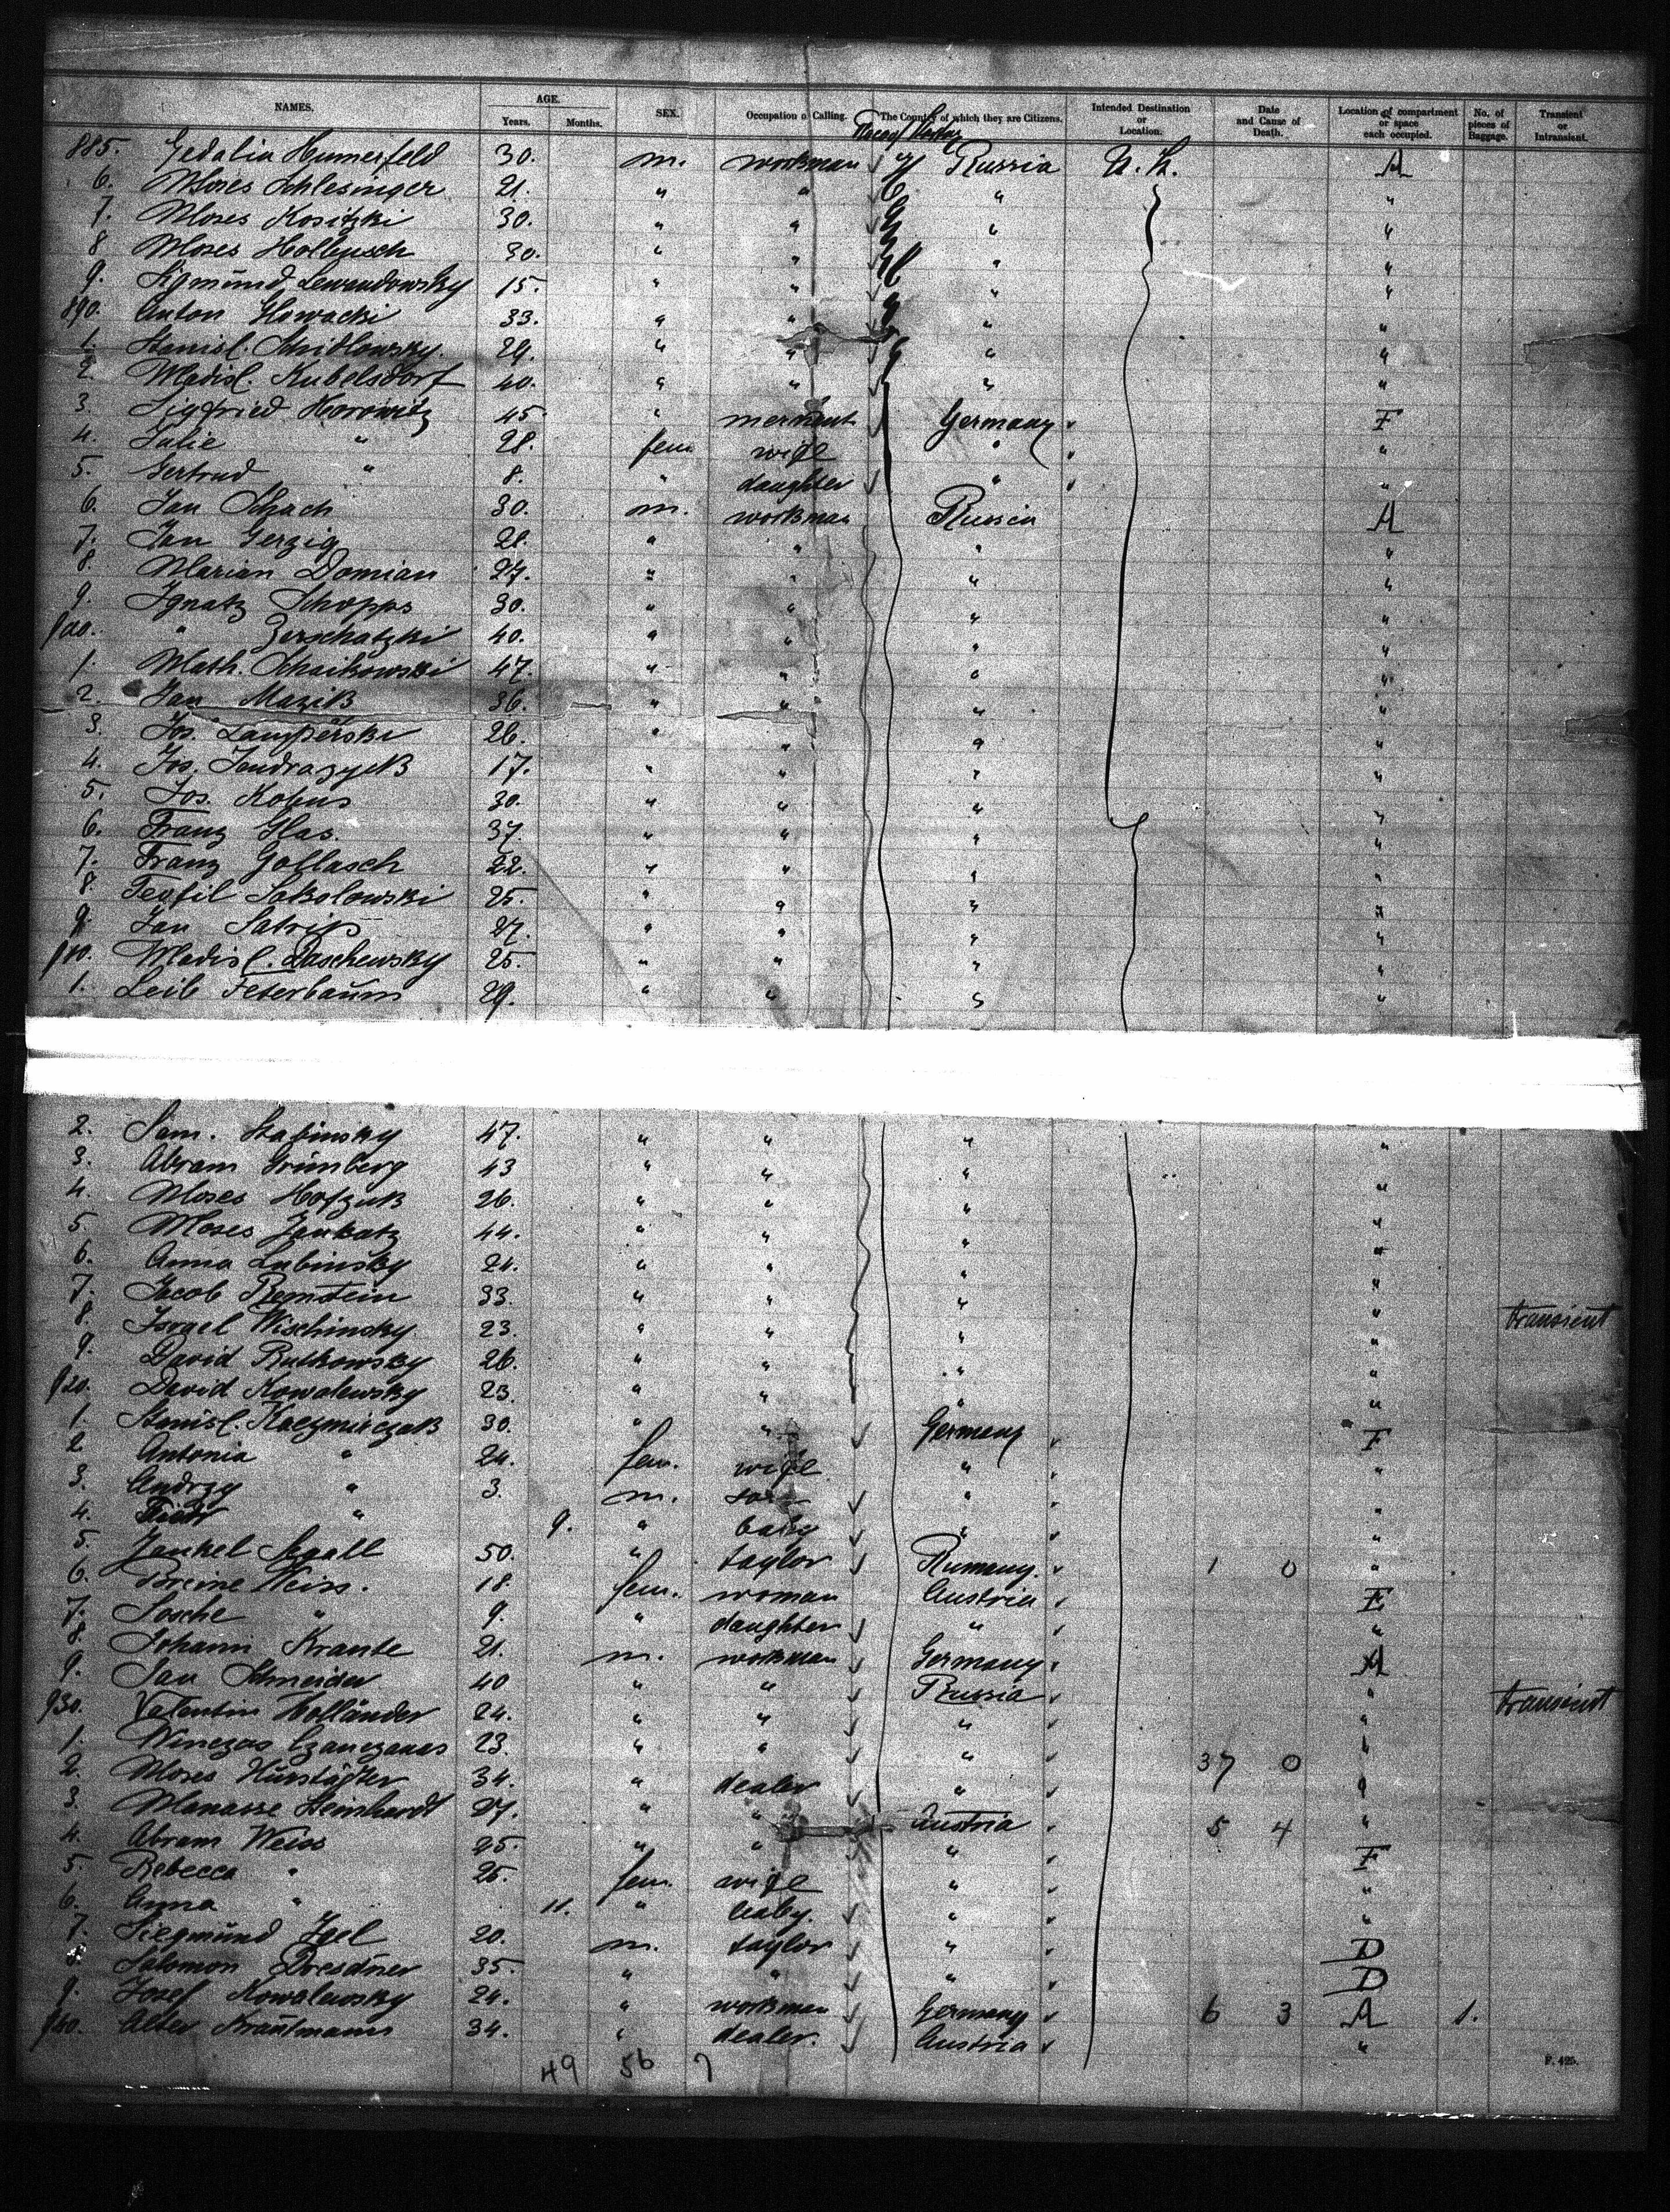 NAMES. AGE. SEX. Occupation or Calling. The Country of which they are Citizens. Intended Destination or Location. Date and Cause of Death. Location of compartment or space each occupied. No. of pieces of Baggage. Transient or Intransient.
Years. Months.
885. Gedalia Humerfeld 30. m. workman Russia A
6. Moses Schlesinger 21. " " " "
7. Moses Kositzki 30. " " " "
8 Moses Hollusch 30. " " " "
9. Sigmund Lewandowsky 15. " " " "
890. Anton Glowacki 33. " " " "
1. Stanisl. 29. " " " "
2. Wladisl. Kubelsdorf 40. " " " "
3. Sigfried Horowitz 45. " Germany F
4. Julie " 28. fem. wife " "
5. Gertrud " 8. " daughter " "
6. Jan Schach 30. m. workman Russia A
7. Jan Gerzig 28. " " " "
8. Marian Domian 27. " " " "
9. Ignatz Schopps 30. " " " "
900. " Zerschatzki 40. " " " "
1. Math. Schaikowski 47. " " " "
2. Jan Mazik 36. " " " "
3. Jos. Lamperski 26. " " " "
4. Jos. Jendrazyck 17. " " " "
5. Jos. Kobus 30. " " " "
6. Franz Glas. 37. " " " "
7. Franz Gollasch 22. " " " "
8. Teofil Sokolowski 25. " " " "
9. Jan 27. " " " "
910. Wladisl. Daschewsky 25. " " " "
1. Leib Feterbaum 29. " " " "
2. Sam. Stabinsky 47. " " " "
3. Abram Grünberg 43 " " " "
4. Moses Hofzuk 26. " " " "
5. Moses Jankatz 44. " " " "
6. Anna Lubinsky 24. " " " "
7. Jacob Bernstein 33. " " " "
8. Israel Wischinsky 23. " " " " transient
9. David Rutkowsky 26. " " " "
920. David Kowalewsky 23. " " " "
1. Stanisl. Kaczmirczak 30. " " Germany F
2 Antonia " 24. fem. wife " "
3. Andrzy " 3. m. son " "
4. " 9. " baby " "
5. Jankel Segall 50. " taylor Rumany. 1 0 "
6. Breine Weiss. 18. fem. woman Austria E
7. Sosche " 9. " daughter " "
8. Johann Krante 21. m. workman Germany A
9. Jan Schneider 40 " " Russia "
930. Valentin Holländer 24. " " " " transient
1. Winczas 23. " " " 37 0 "
2. Moses 34. " dealer " "
3. Manasse Steinhardt 27. " " Austria 5 4 "
4. Abram Weiss 25. " " " F
5. Rebecca " 25. fem. wife " "
6. Anna " 11. " baby. " "
7. Siegmund Igel 20. m. taylor " D
8. Salomon Dresdner 35. " " " D
9. Josef Kowalewsky 24. " workman Germany 6 3 A 1.
940. Alter Krautmann 34. " dealer. Austria "
49 56 7
F. 425.